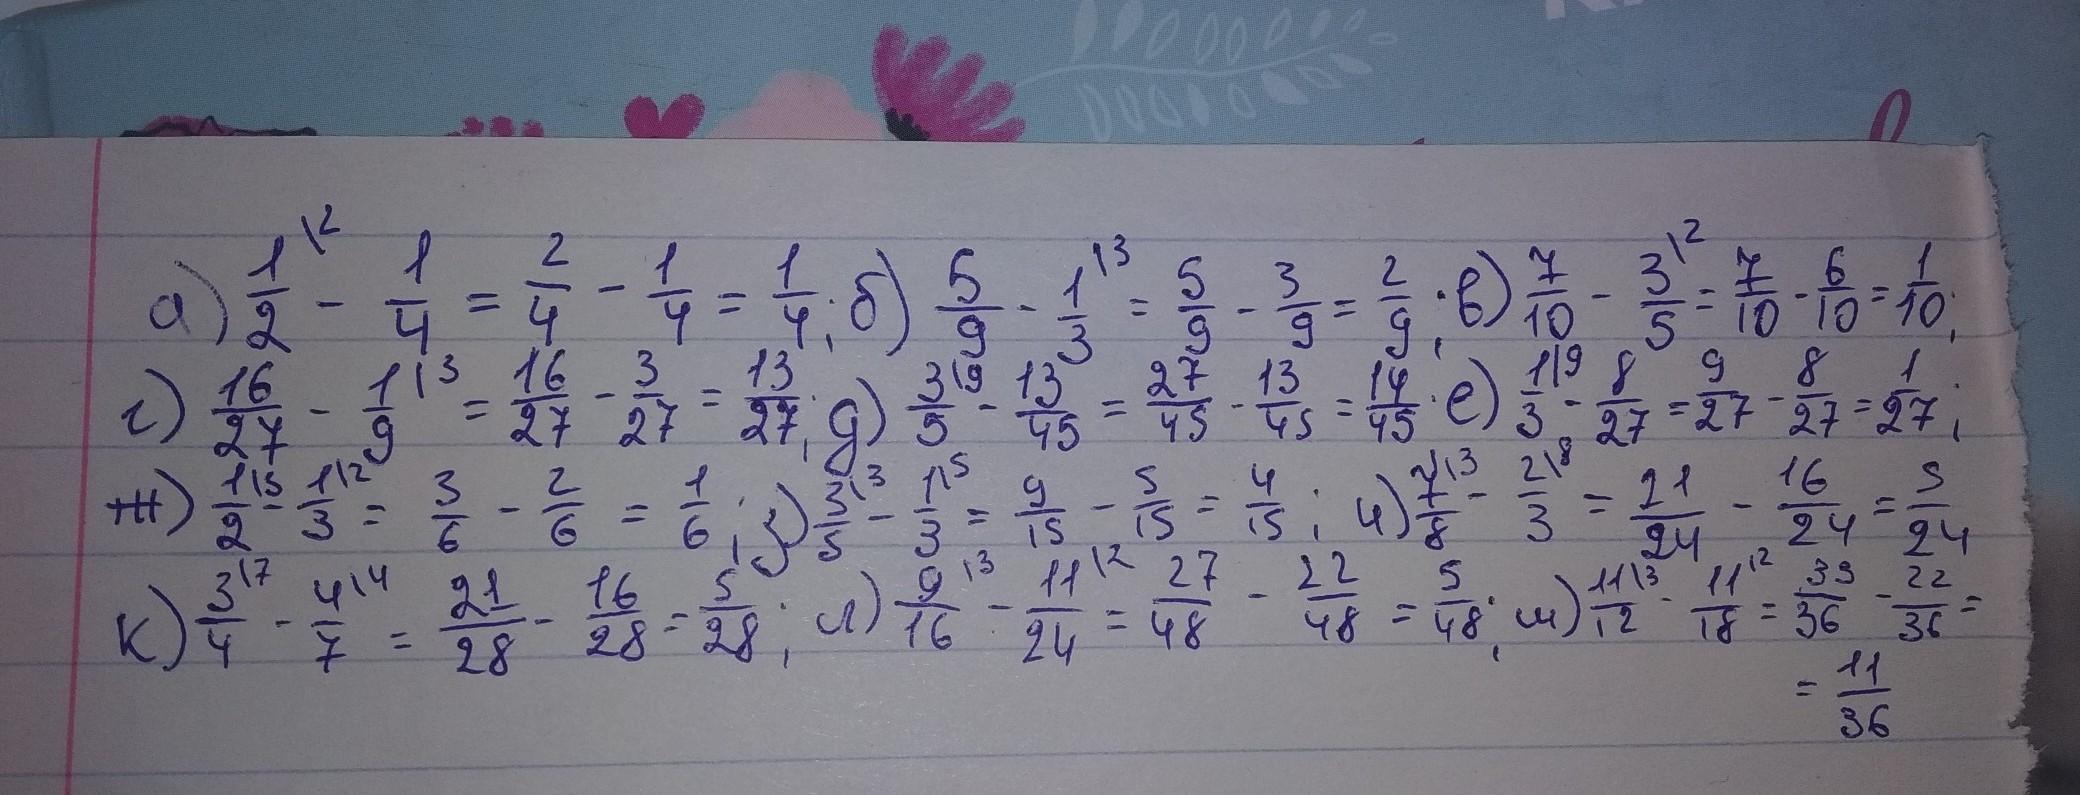 а) 1/2 \2 - 1/4 = 2/4 - 1/4 = 1/4; б) 5/9 - 1/3 \3 = 5/9 - 3/9 = 2/9; в) 7/10 - 3/5 \2 = 7/10 - 6/10 = 1/10;
г) 16/27 - 1/9 \3 = 16/27 - 3/27 = 13/27; д) 3/5 \9 - 13/45 = 27/45 - 13/45 = 14/45; е) 1/3 \9 - 8/27 = 9/27 - 8/27 = 1/27;
ж) 1/2 \3 - 1/3 \2 = 3/6 - 2/6 = 1/6; з) 3/5 \3 - 1/3 \5 = 9/15 - 5/15 = 4/15; и) 7/8 \3 - 2/3 \8 = 21/24 - 16/24 = 5/24
к) 3/4 \7 - 4/7 \4 = 21/28 - 16/28 = 5/28; л) 9/16 \3 - 11/24 \2 = 27/48 - 22/48 = 5/48; м) 11/12 \3 - 11/18 \2 = 33/36 - 22/36 =
= 11/36